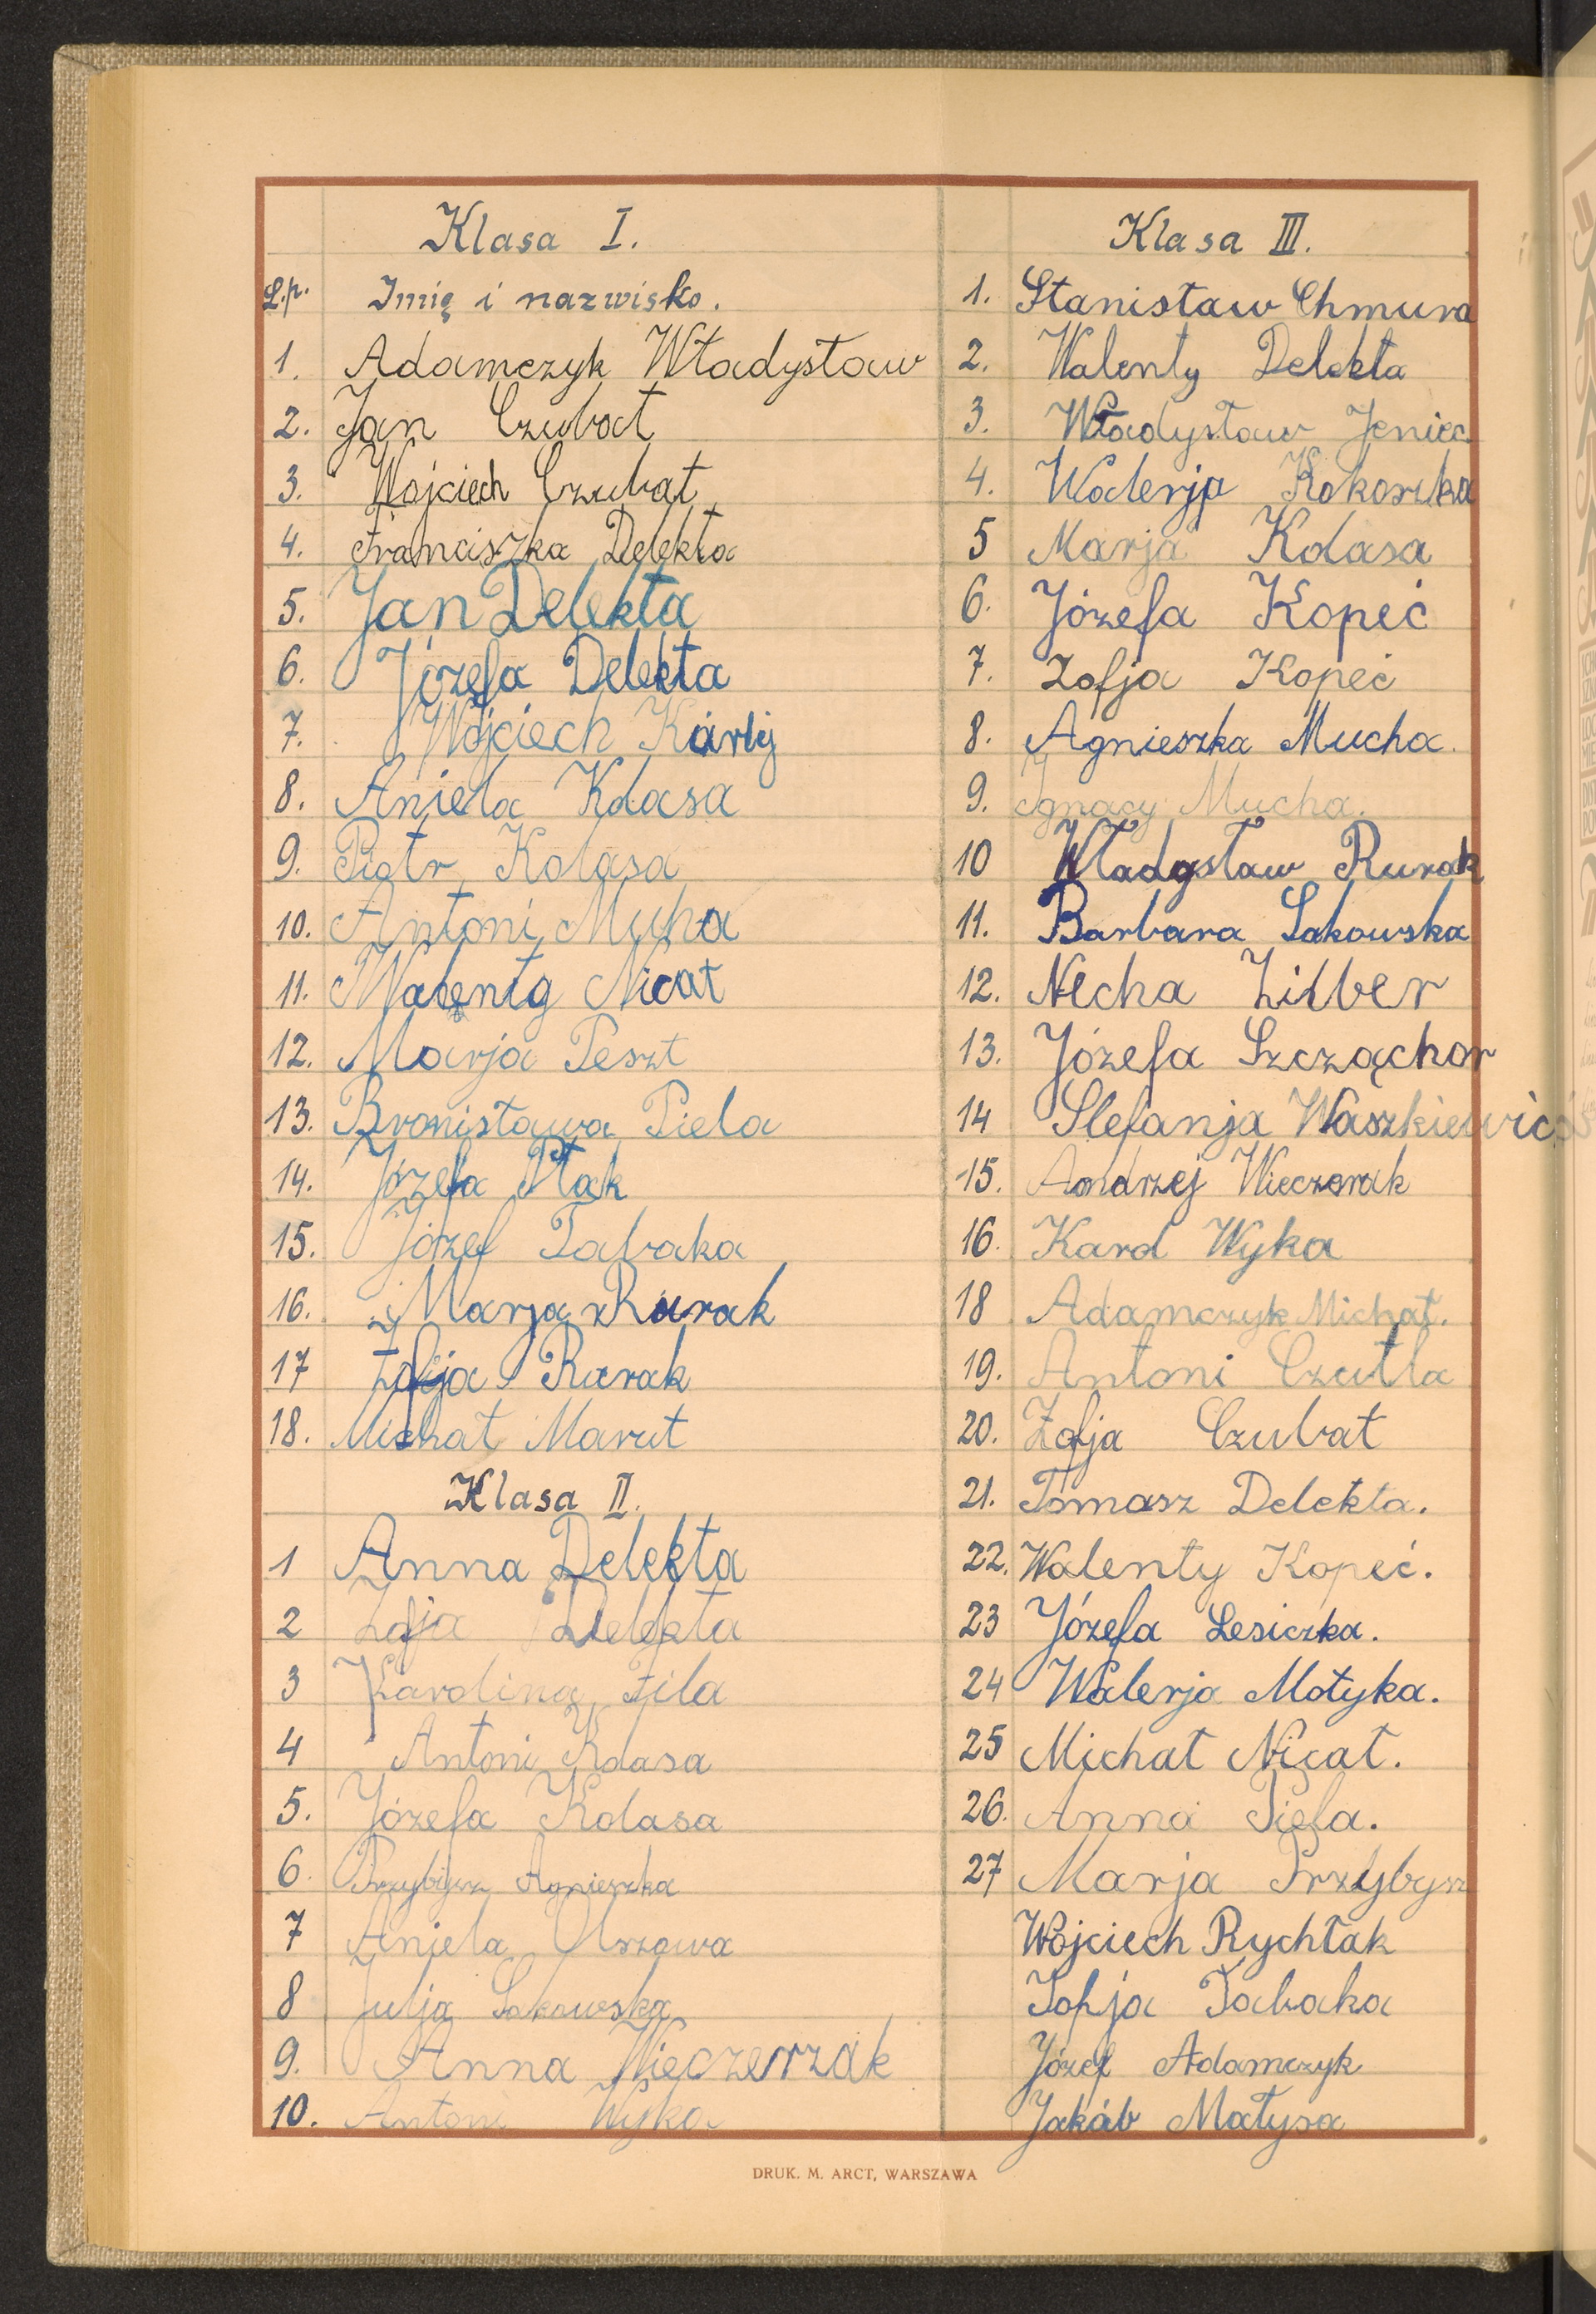 Klasa I.
L.p. Imię i nazwisko.
1. Adamczyk Władysław
2. Jan Czubat
3. Wojciech Czubat
4. Franciszka Delekta
5. Jan Delekta
6. Józefa Delekta
7. Wojciech Karlij
8. Aniela Kolasa
9. Piotr Kolasa
10. Antoni Muha
11. Walenty Nicał
12. Marja Peszt
13. Bronisława Piela
14. Józefa Ptak
15. Józef Tabaka
16. Marja Rurak
17 Zofja Rurak
18. Michał Marut
Klasa II.
1 Anna Delekta
2 Zofja Delekta
3 Karolina Fila
4 Antoni Kolasa
5. Józefa Kolasa
6. Przybysz Agnieszka
7 Aniela Warzawa
8 Julja Sakowska
9. Anna Wieczerzak
10. Antoni Wyka
Klasa III.
1. Stanisław Chmura
2. Walenty Delekta
3. Władysław Jeniec
4. Walerja Kokoszka
5 Marja Kolasa
6. Józefa Kopeć
7. Zofja Kopeć
8. Agnieszka Mucha.
9. Ignacy Mucha.
10 Władysław Rurak
11. Barbara Sakowska
12. Necha Zilber
13. Józefa Szcząchor
14 Stefanja Waszkiewicz
15. Andrzej Wieczorak
16. Karol Wyka
18 Adamczyk Michał.
19. Antoni Czutla
20. Zofja Czubat
21. Tomasz Delekta.
22. Walenty Kopeć.
23 Józefa Lesiczka.
24 Walerja Motyka.
25 Michał Nicał.
26. Anna Piela.
27 Marja Przybysz
Wojciech Rychtak
Zofja Tabaka
Józef Adamczyk
Jakób Matysa
DRUK. M. ARCT, WARSZAWA